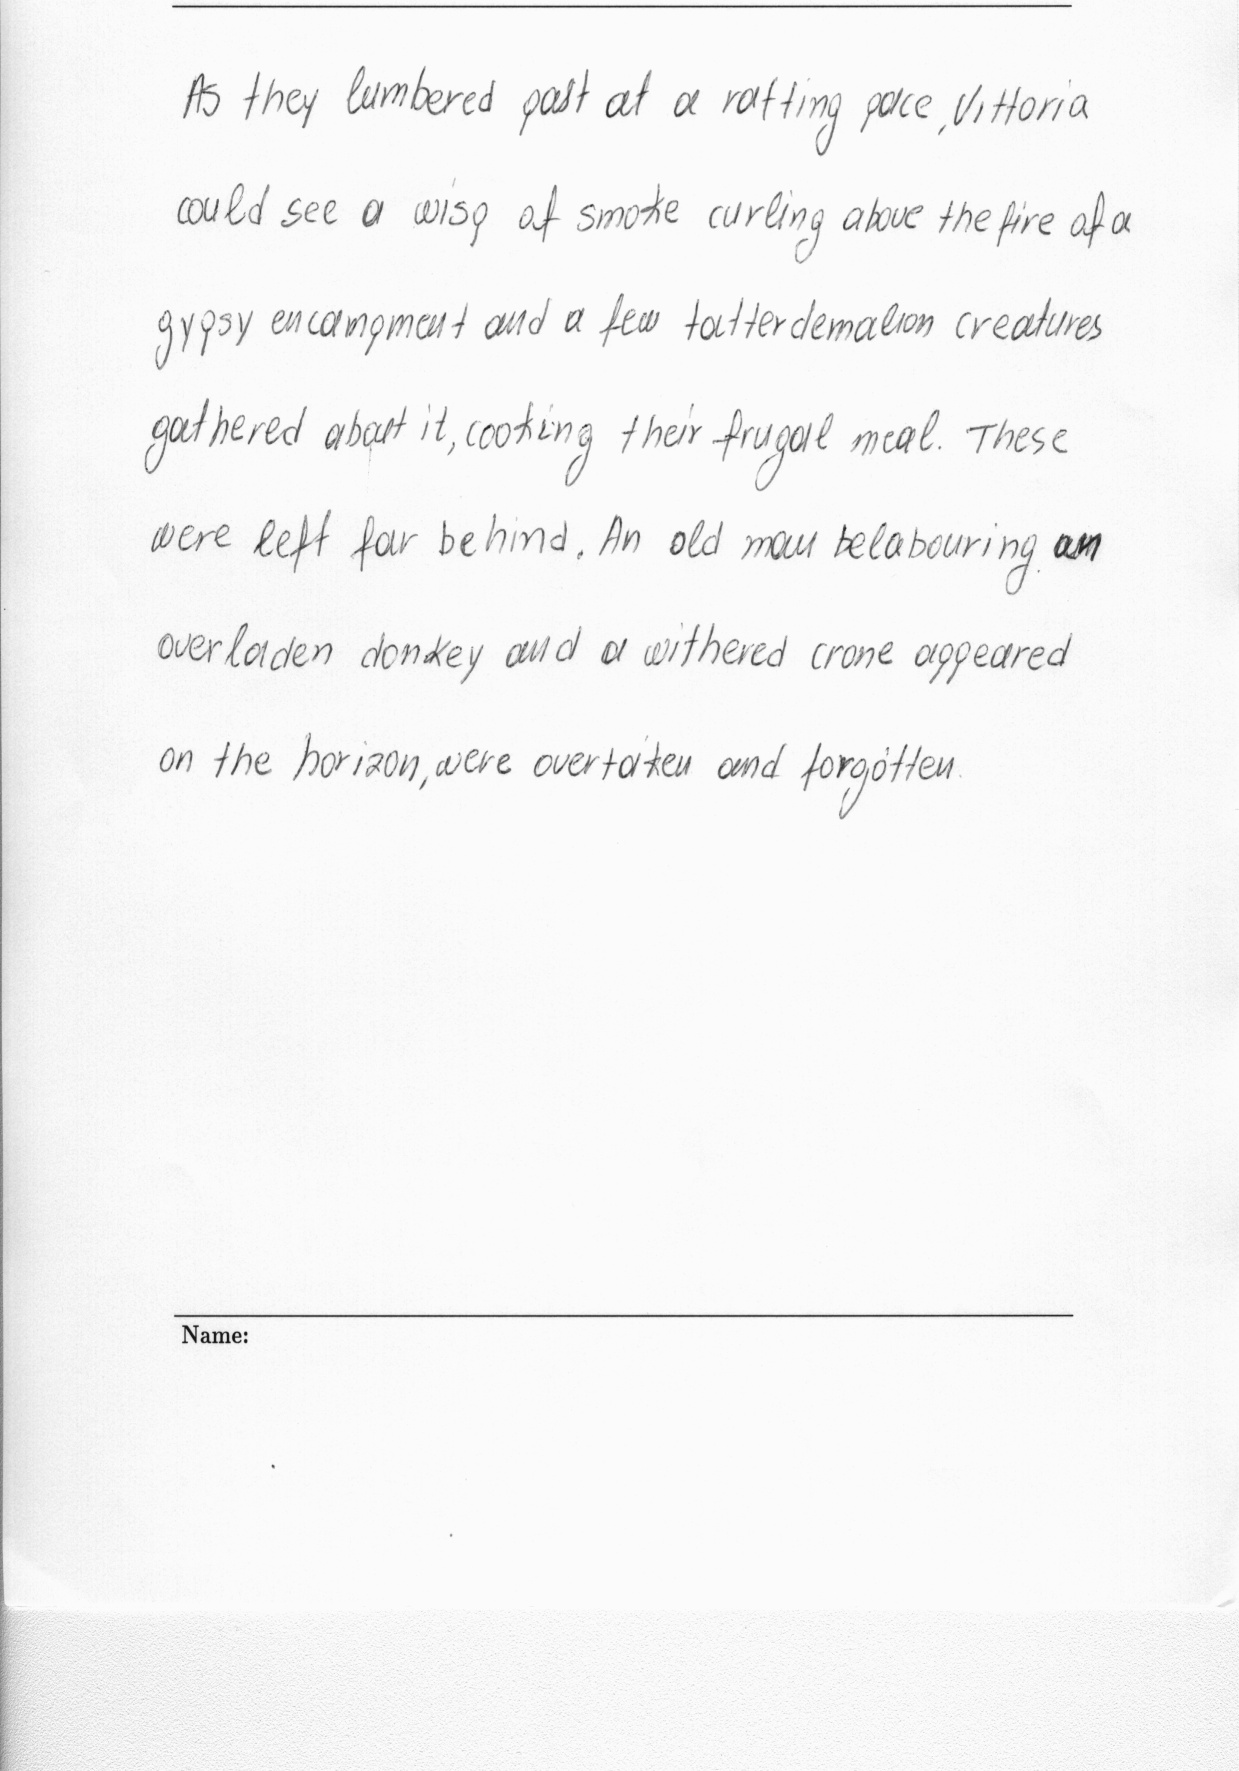 As they lumbered past at a ratting pace, Vittoria
could see a wisp of smoke curling above the fire of a
gypsy encampment and a few tatterdemalion creatures
gathered about it, cooking their frugal meal. These
were left far behind. An old man belabouring an
overladen donkey and a withered crone appeared
on the horizon, were overtaken and forgotten.
Name: